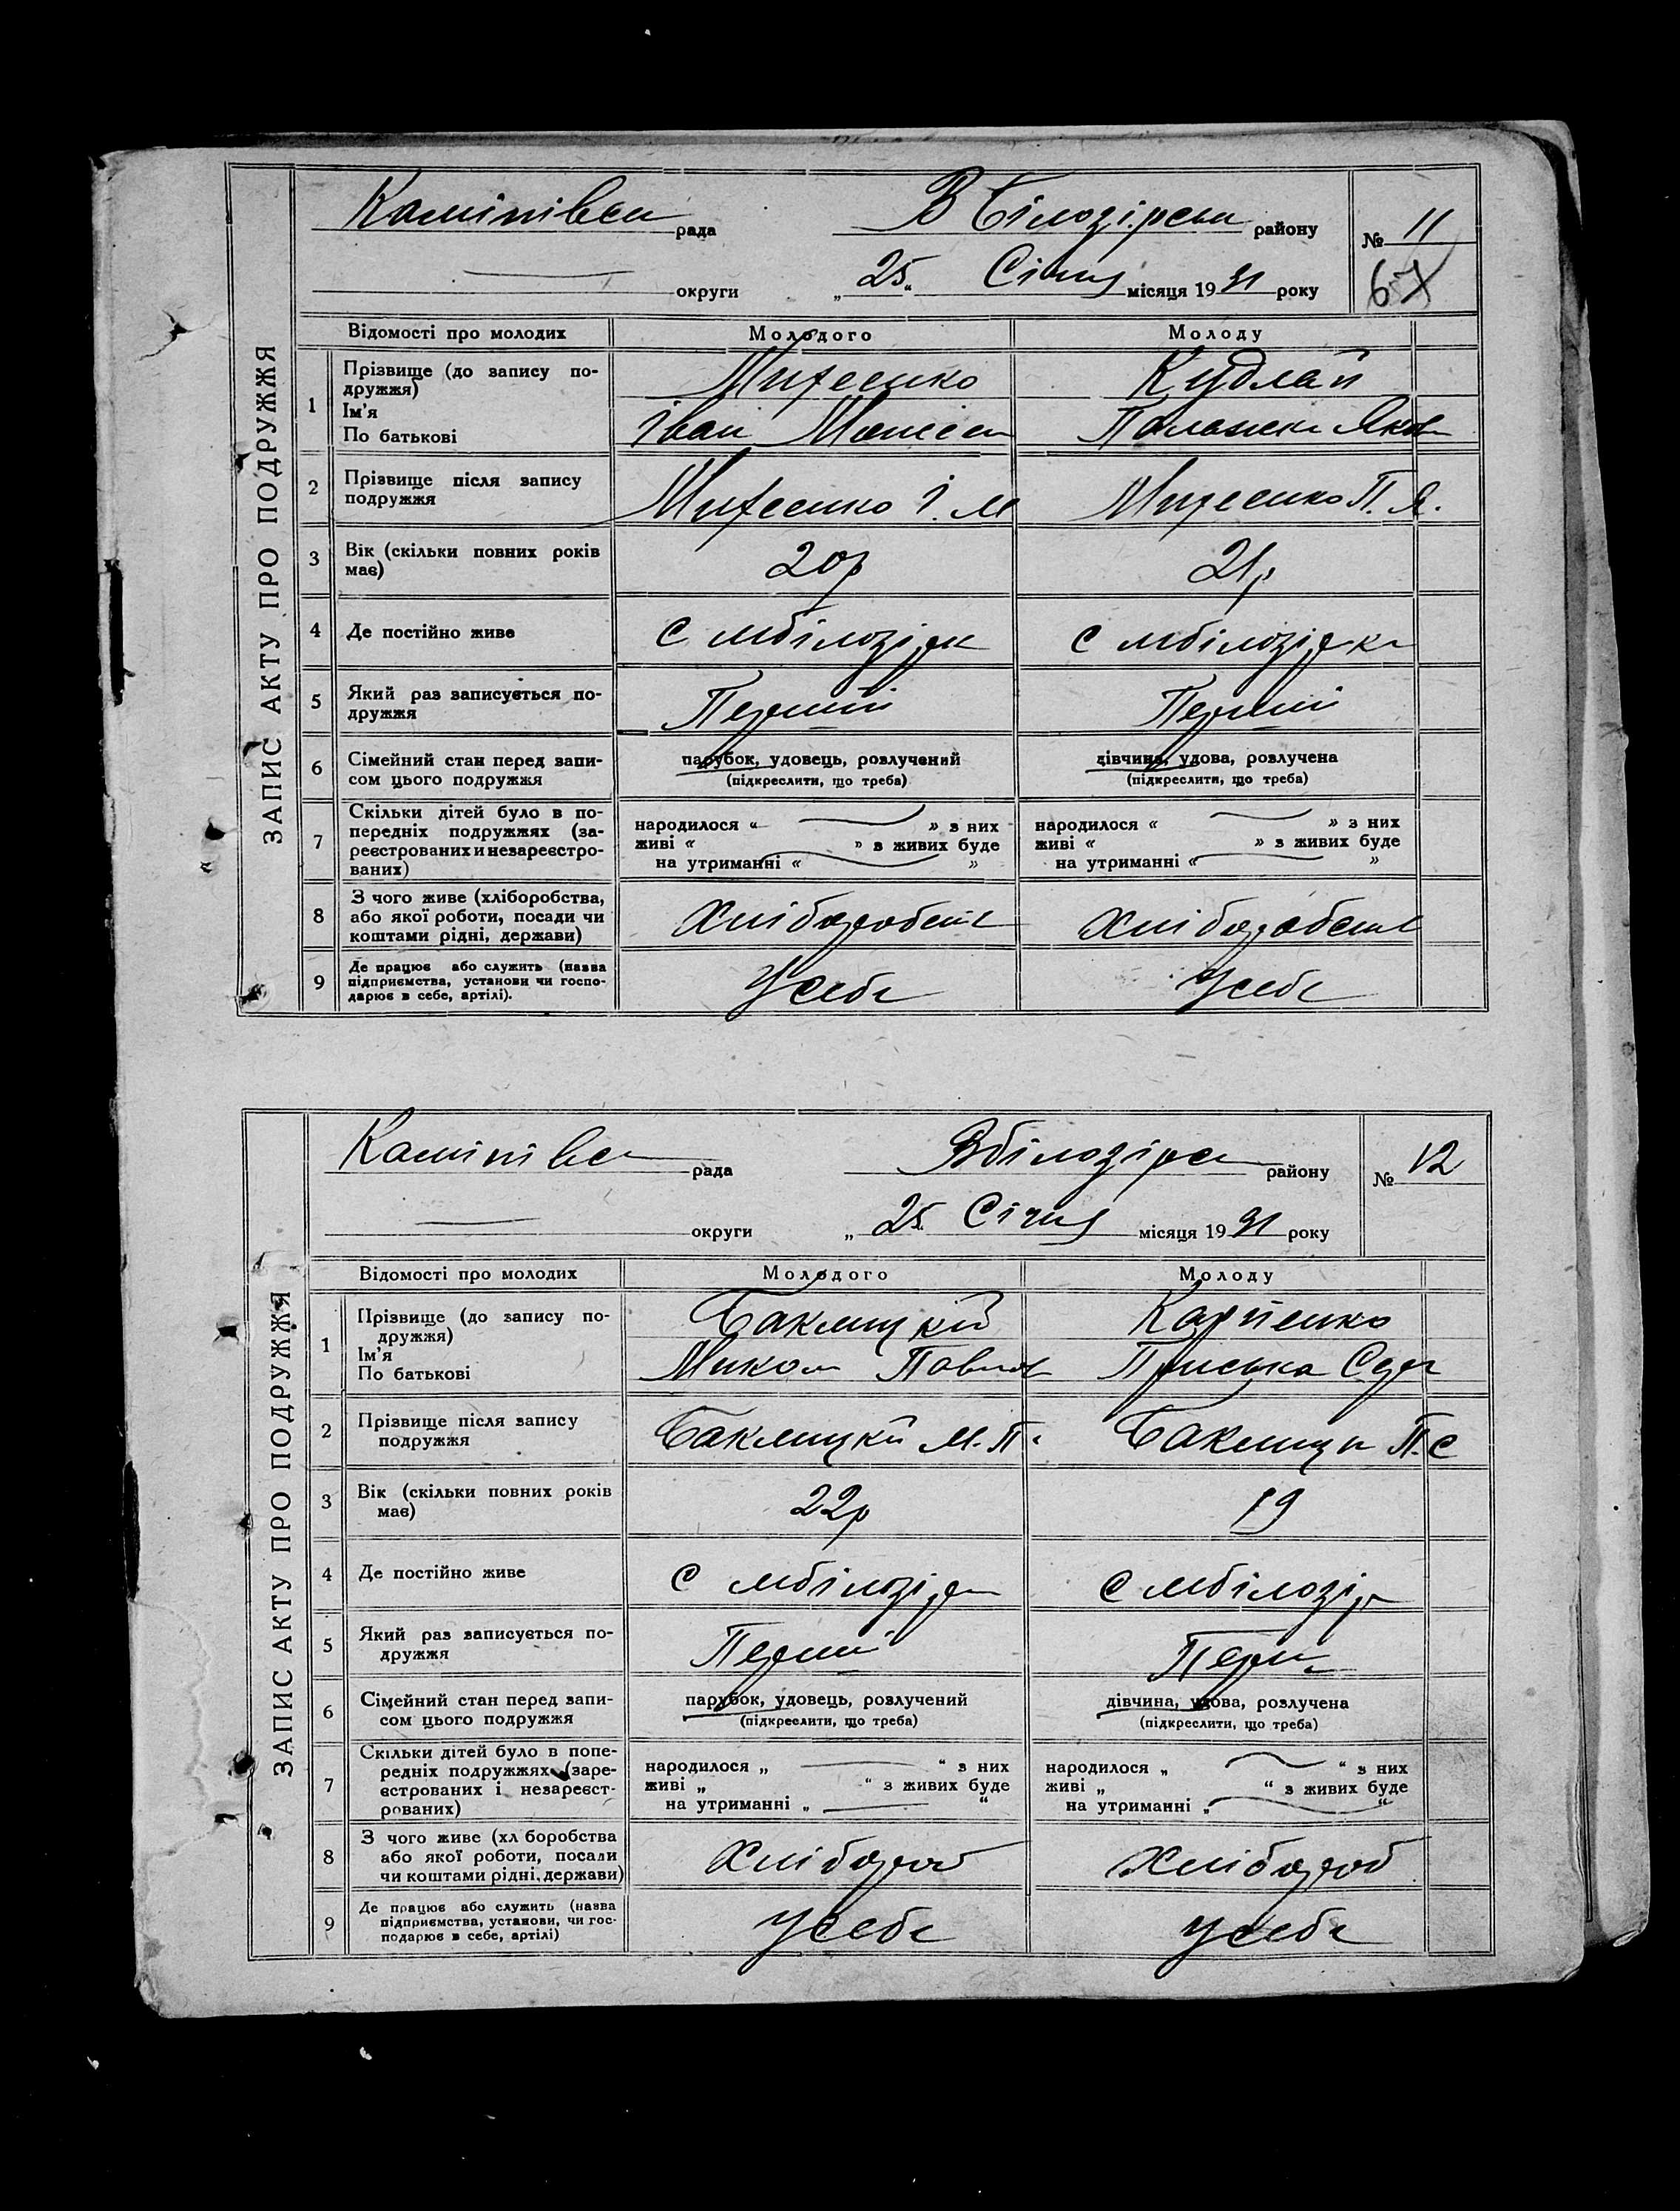 ЗАПИС АКТУ ПРО ПОДРУЖЖЯ
рада В Білозірськ району № 11
округи „ 25 “ Січня місяця 19 31 року 67
Відомості про молодих Молодого Молоду
1 Прізвище (до запису по- Михеенко Кудлай
дружжя)
Ім'я Іван Полажка Яков
По батькові
2 Прізвище після запису Михеенко І. М Михеенко П. Я.
подружжя
3 Вік (скільки повних років 20р 21р
має)
4 Де постійно живе С мбілозірк С мбілозірка
5 Який раз записується по- Перший Перший
дружжя
6 Сімейний стан перед запи- парубок, удовець, розлучений дівчина, удова, розлучена
сом цього подружжя (підкреслити, що треба) (підкреслити, що треба)
7 Скільки дітей було в по- народилося « » з них народилося « » з них
передніх подружжях (за- живі « » з живих буде живі « » з живих буде
реєстрованих и незареєстро- на утриманні « » на утриманні « »
ваних)
8 З чого живе (хліборобства, Хліборобств Хліборобств
або якої роботи, посади чи
коштами рідні, держави)
9 Де працює або служить (назва Усебе Усебе
підприємства, установи чи госпо-
дарює в себе, артілі).
ЗАПИС АКТУ ПРО ПОДРУЖЖЯ
рада Вбілозірс району № 12
округи „ 25 “ Січня місяця 19 31 року
Відомості про молодих Молодого Молоду
1 Прізвище (до запису по- Баклицкій Карпенко
дружжя)
Ім'я Микола Павлов Приська
По батькові
2 Прізвище після запису Баклицкй М. П. П. С
подружжя
3 Вік (скільки повних років 22р 19
має)
4 Де постійно живе С мбілозір С мбілозір
5 Який раз записується по- Перший Перш
дружжя
6 Сімейний стан перед запи- парубок, удовець, розлучений дівчина, удова, розлучена
сом цього подружжя (підкреслити, що треба) (підкреслити, що треба)
7 Скільки дітей було в попе- народилося „ “ з них народилося „ “ з них
редніх подружжях (заре- живі „ “ з живих буде живі „ “ з живих буде
єстрованих і незареєст- на утриманні „ “ на утриманні „ “
рованих)
8 З чого живе (хл боробства Хлібороб Хлібороб
або якої роботи, посали
чи коштами рідні, держави)
9 Де працює або служить (назва Усебе Усебе
підприємства, установи, чи гос-
подарює в себе, артілі)